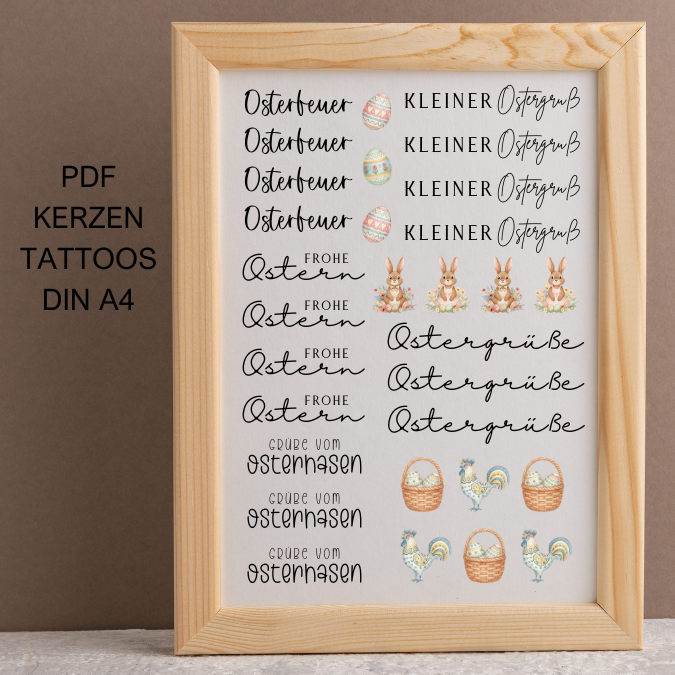 PDF
KERZEN
TATTOOS
DIN A4
Osterfeuer
Osterfeuer
Osterfeuer
Osterfeuer
KLEINER Ostergruß
KLEINER Ostergruß
KLEINER Ostergruß
KLEINER Ostergruß
FROHE
Ostern
FROHE
Ostern
FROHE
Ostern
FROHE
Ostern
Ostergrüße
Ostergrüße
Ostergrüße
GRÜßE VOM
Osterhasen
GRÜßE VOM
Osterhasen
GRÜßE VOM
Osterhasen